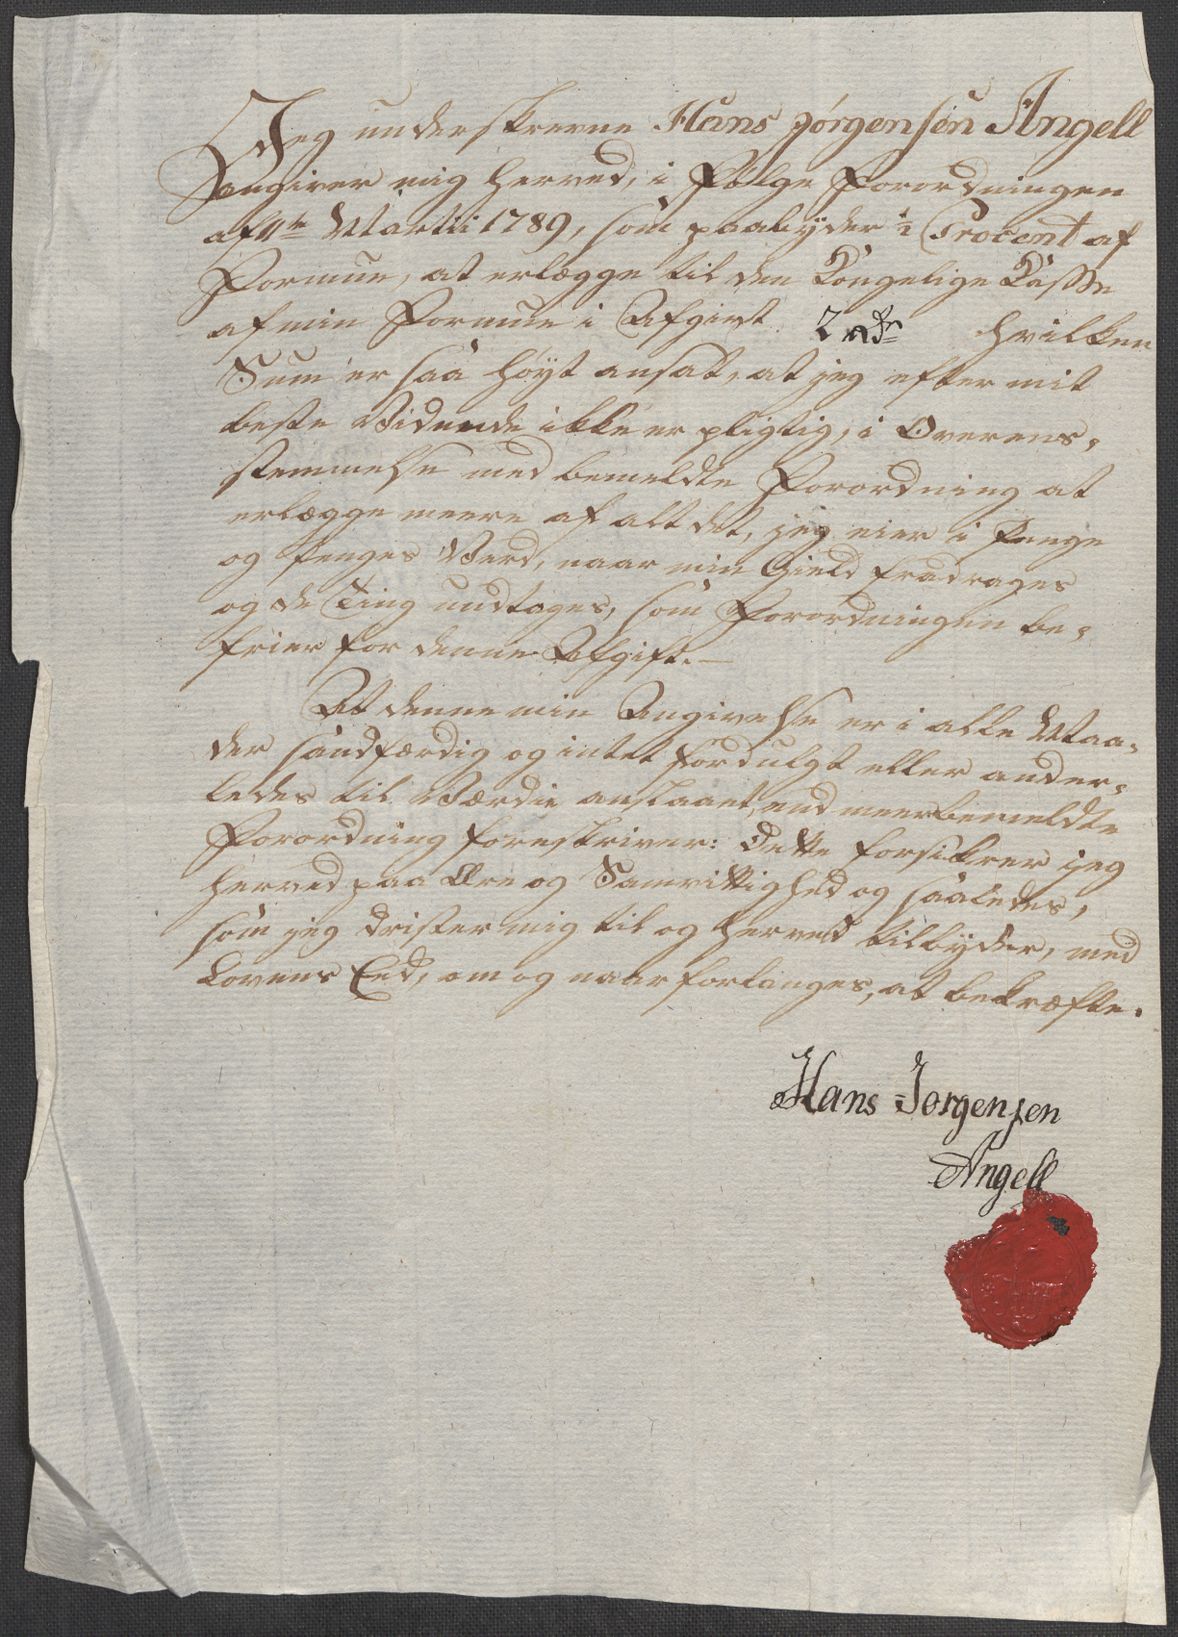 Jeg underskrevne Hans Jörgensen Angell
angiver mig herved, i Følge Forordningen
af 11te Martii 1789, som paabyder ½ Procent af
Formue, at erlægge til den Kongelige Kasse
af min Formue i Afgivt 2 rdr hvilken
Sum er saa høyt ansat, at jeg efter mit
beste Vidende ikke er pligtig, i Overens-
stemmelse med bemeldte Forordning at
erlægge meere af alt det, jeg eier i Penge
og Penges Verd, naar min Gield fradrages
og de Ting undtages, som Forordningen be-
frier for denne Afgift.—
At denne min Angivelse er i alle Maa-
der sandfærdig og intet fordulgt eller ander-
ledes til Værdie anslaaet, end meerbemeldte
Forordning foreskriver: Dette forsikrer jeg
herved paa Ære og Samvittighed og saaledes,
som jeg drister mig til og herved tilbyder, med
Lovens Eed, om og naar forlanges, at bekræfte.
Hans Jörgensen
Angell